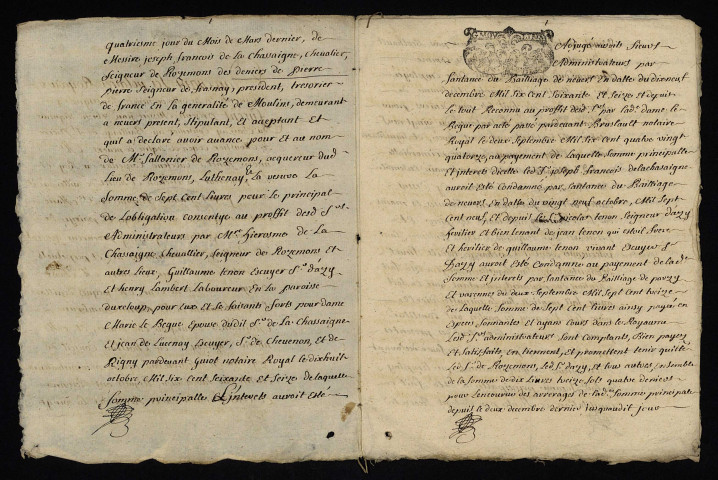 quatriesme jour du Mois de Mars dernier, de
Messire joseph francois de la Chassaigne, Chevalier,
Seigneur de Rozemons des deniers de pierre
pierre Seigneur de frasnay, president, tresorier
de france En la generalité de Moulins, demeurant
a nevers present, stipulant, Et aceptant Et
qui a declaré avoir avancé pour Et au nom
de Mr. Sallonier de Rozemons, acquereur dud
Lieu de Rozemons, Luthenay, Et La vesvre La
Somme de Sept Cent Livres pour le principal
de Lobligation consentye au proffit desd Srs
Administrateurs par Mre hierosme de La
Chassaigne Chevallier, Seigneur de Rozemons Et
autres Lieux, Guillaume tenon Escuyer Sr. d'azy
Et henry Lambert Laboureur En La paroisse
duxeloup, pour eux Et Se faisants forts pour dame
Marie le Begue Epouse dudit Sr. de La Chassaigne
Et jean de Lucenay Escuyer, Sr. de Chevenon, Et de
Bigny pardevant, Guiot notaire Royal le dixhuit
octobre, Mil Six cent Soixante, Et Seize de laquelle
Somme principalle Et interets auroit Esté
Adjugé ausdits Sieurs
Administrateurs par
Santance du Bailliage de nevers En datte du dixneuf
decembre Mil Six Cent Soixante Et Seize Et depuis
le tout Reconnu au proffit desd Srs. par Lade. dame le
Begue par acte passé pardevant Bruslault notaire
Royal le deux Septembre Mil Six Cent quatre vingt
quatorze, au payement de Laquelle Somme principalle
Et interets dicelle led Sr. joseph francois delachassaigne
auroit Esté Condamné par Santance du Bailliage
de nevers, En datte du vingt neuf octobre, Mil Sept
Cent neuf, Et depuis led Sr. nicolas tenon Seigneur dazy
heritier Et bientenant de jean tenon qui estoit frere
Et heritier de guillaume tenon vivant Escuyer Sr.
dazy auroit Esté Condamné au payement de lade.
Somme Et interets par Santance du Bailliage de
Et varennes du deux Septembre Mil Sept Cent treize
de Laquelle Somme de Sept Cent Livres ainsy payée En
Especes Sonnantes Et ayans Cours dans le Royaume
Lesd. Srs. administrateurs Sont Comptants, Bien payez
Et Satisfaits, en tiennent, Et promettent tenir quitte
Led Sr. de Rozemons, led Sr. dazy, Et tous autres, Ensemble
de la Somme de dix Livres treize Sols quatre deniers
pour Lencouru des arrerages de lade. Somme principalle
depuis le deux decembre dernier jusquaudit jour